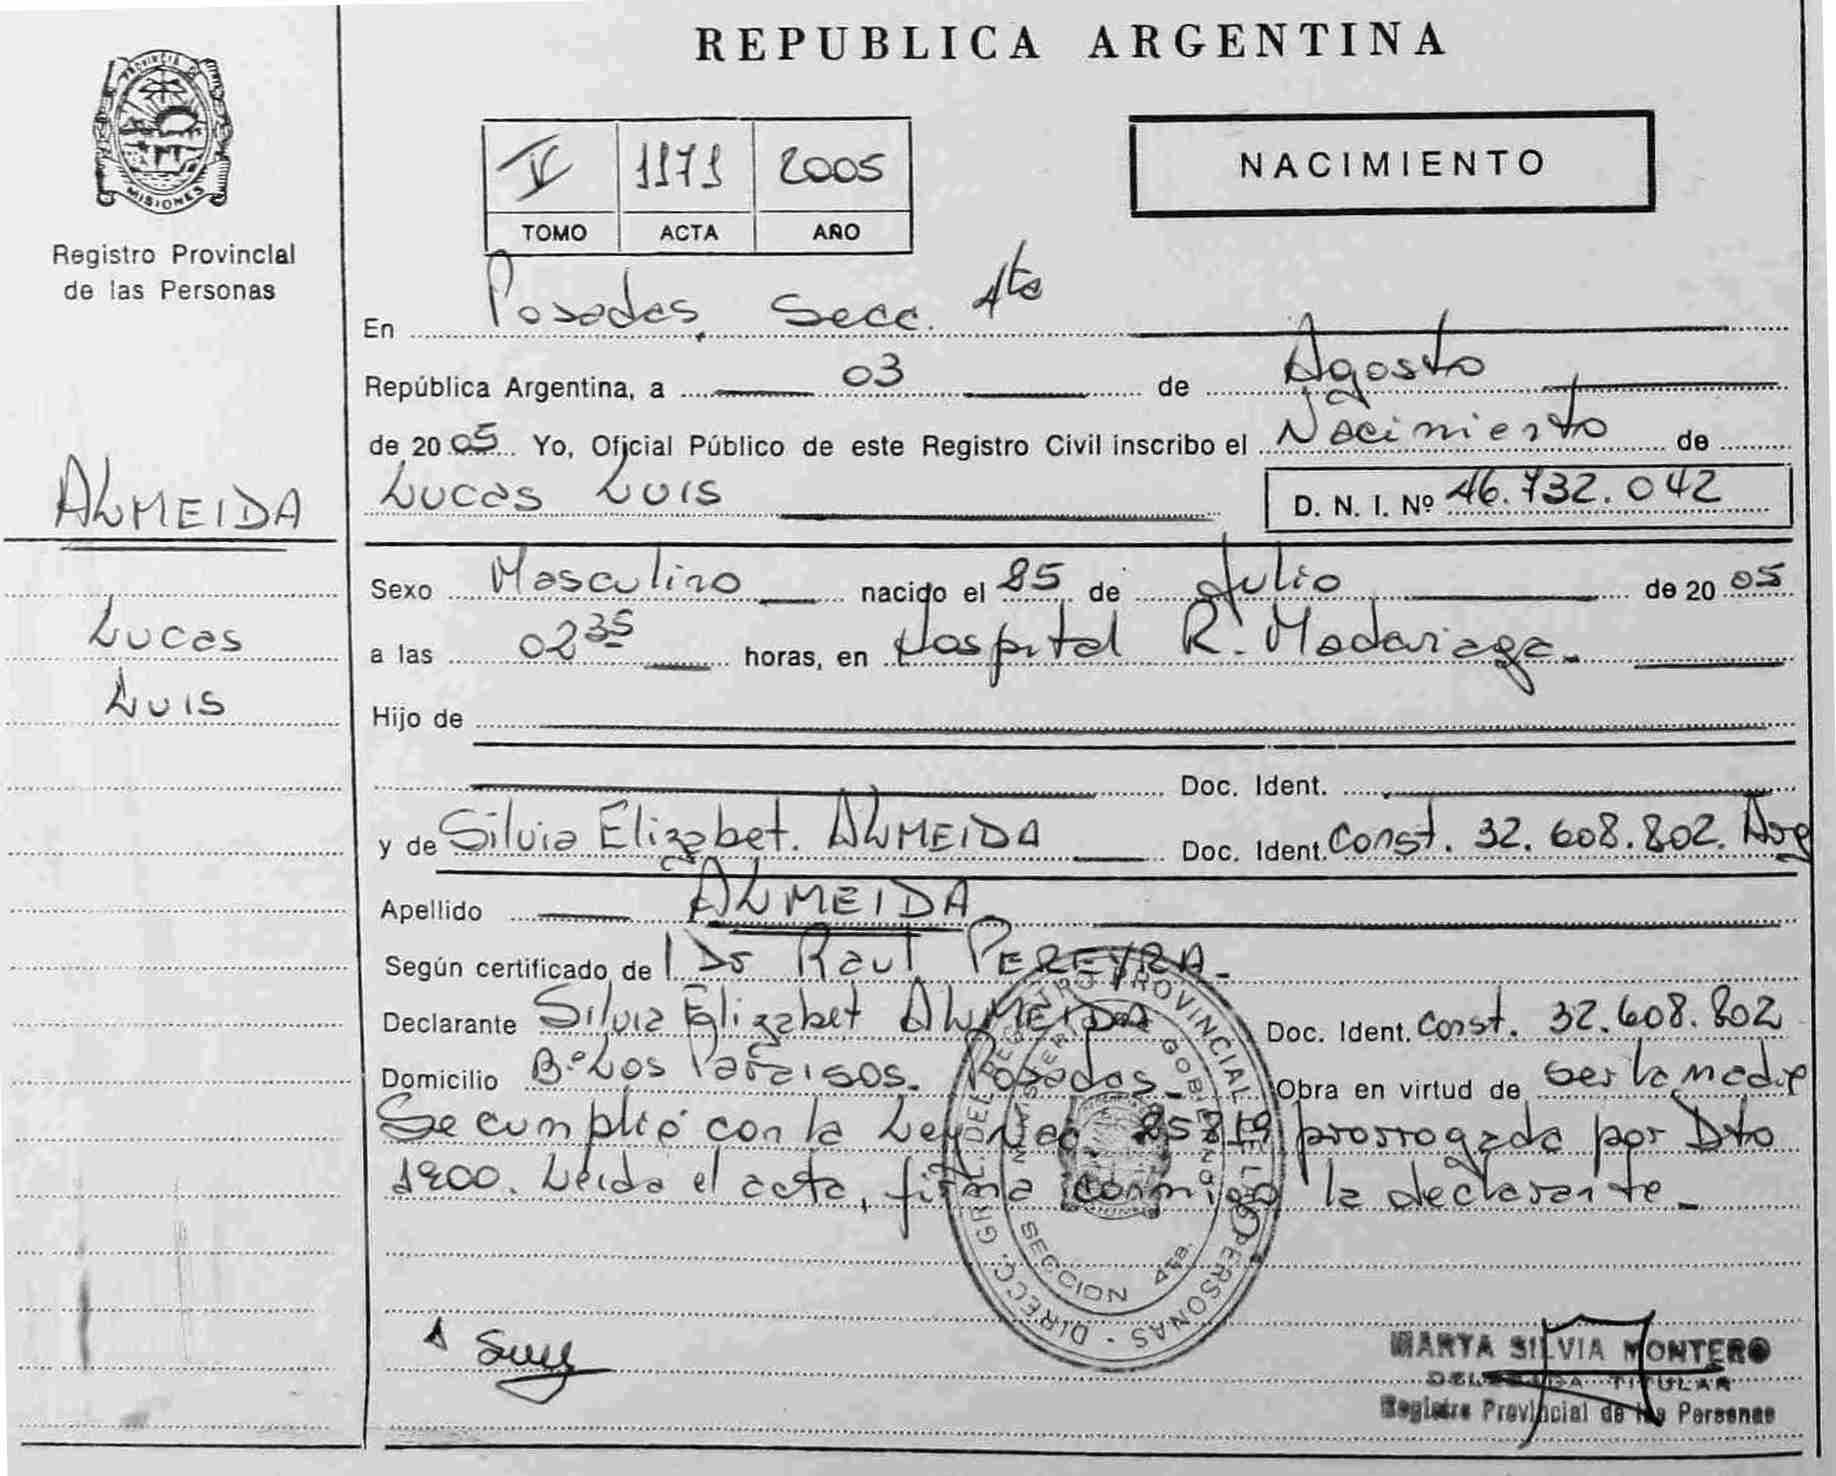 REPUBLICA ARGENTINA
PROVINCIA DE
MISIONES
Registro Provincial
de las Personas
IV 1171 2005
TOMO ACTA AÑO
NACIMIENTO
En Posadas, Secc. 4ta
República Argentina, a 03 de Agosto
de 2005 Yo, Oficial Público de este Registro Civil inscribo el Nacimiento de
Lucas Luis D. N. I. Nº 46.732.042
ALMEIDA
Lucas
Luis
Sexo Masculino nacido el 25 de Julio de 2005
a las 02 35 horas, en Hospital R. Madariaga.
Hijo de
Doc. Ident.
y de Silvia Elizabet. ALMEIDA Doc. Ident. Const. 32.608.802. Arg
Apellido ALMEIDA
Según certificado de Dr Raul PEREYRA.
Declarante Silvia Elizabet ALMEIDA Doc. Ident. Const. 32.608.802
Domicilio Bº Los Paraisos. Posadas. Obra en virtud de ser la madre
Se cumplió con la Ley Nac. 25819 prorrogada por Dto
1200. Leida el acta, firma conmigo la declarante.
DIRECC. GRAL. DEL REGISTRO PROVINCIAL DE LAS PERSONAS
MINISTERIO DE GOBIERNO
SECCION 4ta.
MARTA SILVIA MONTERO
DELEGADA TITULAR
Registro Provincial de las Personas